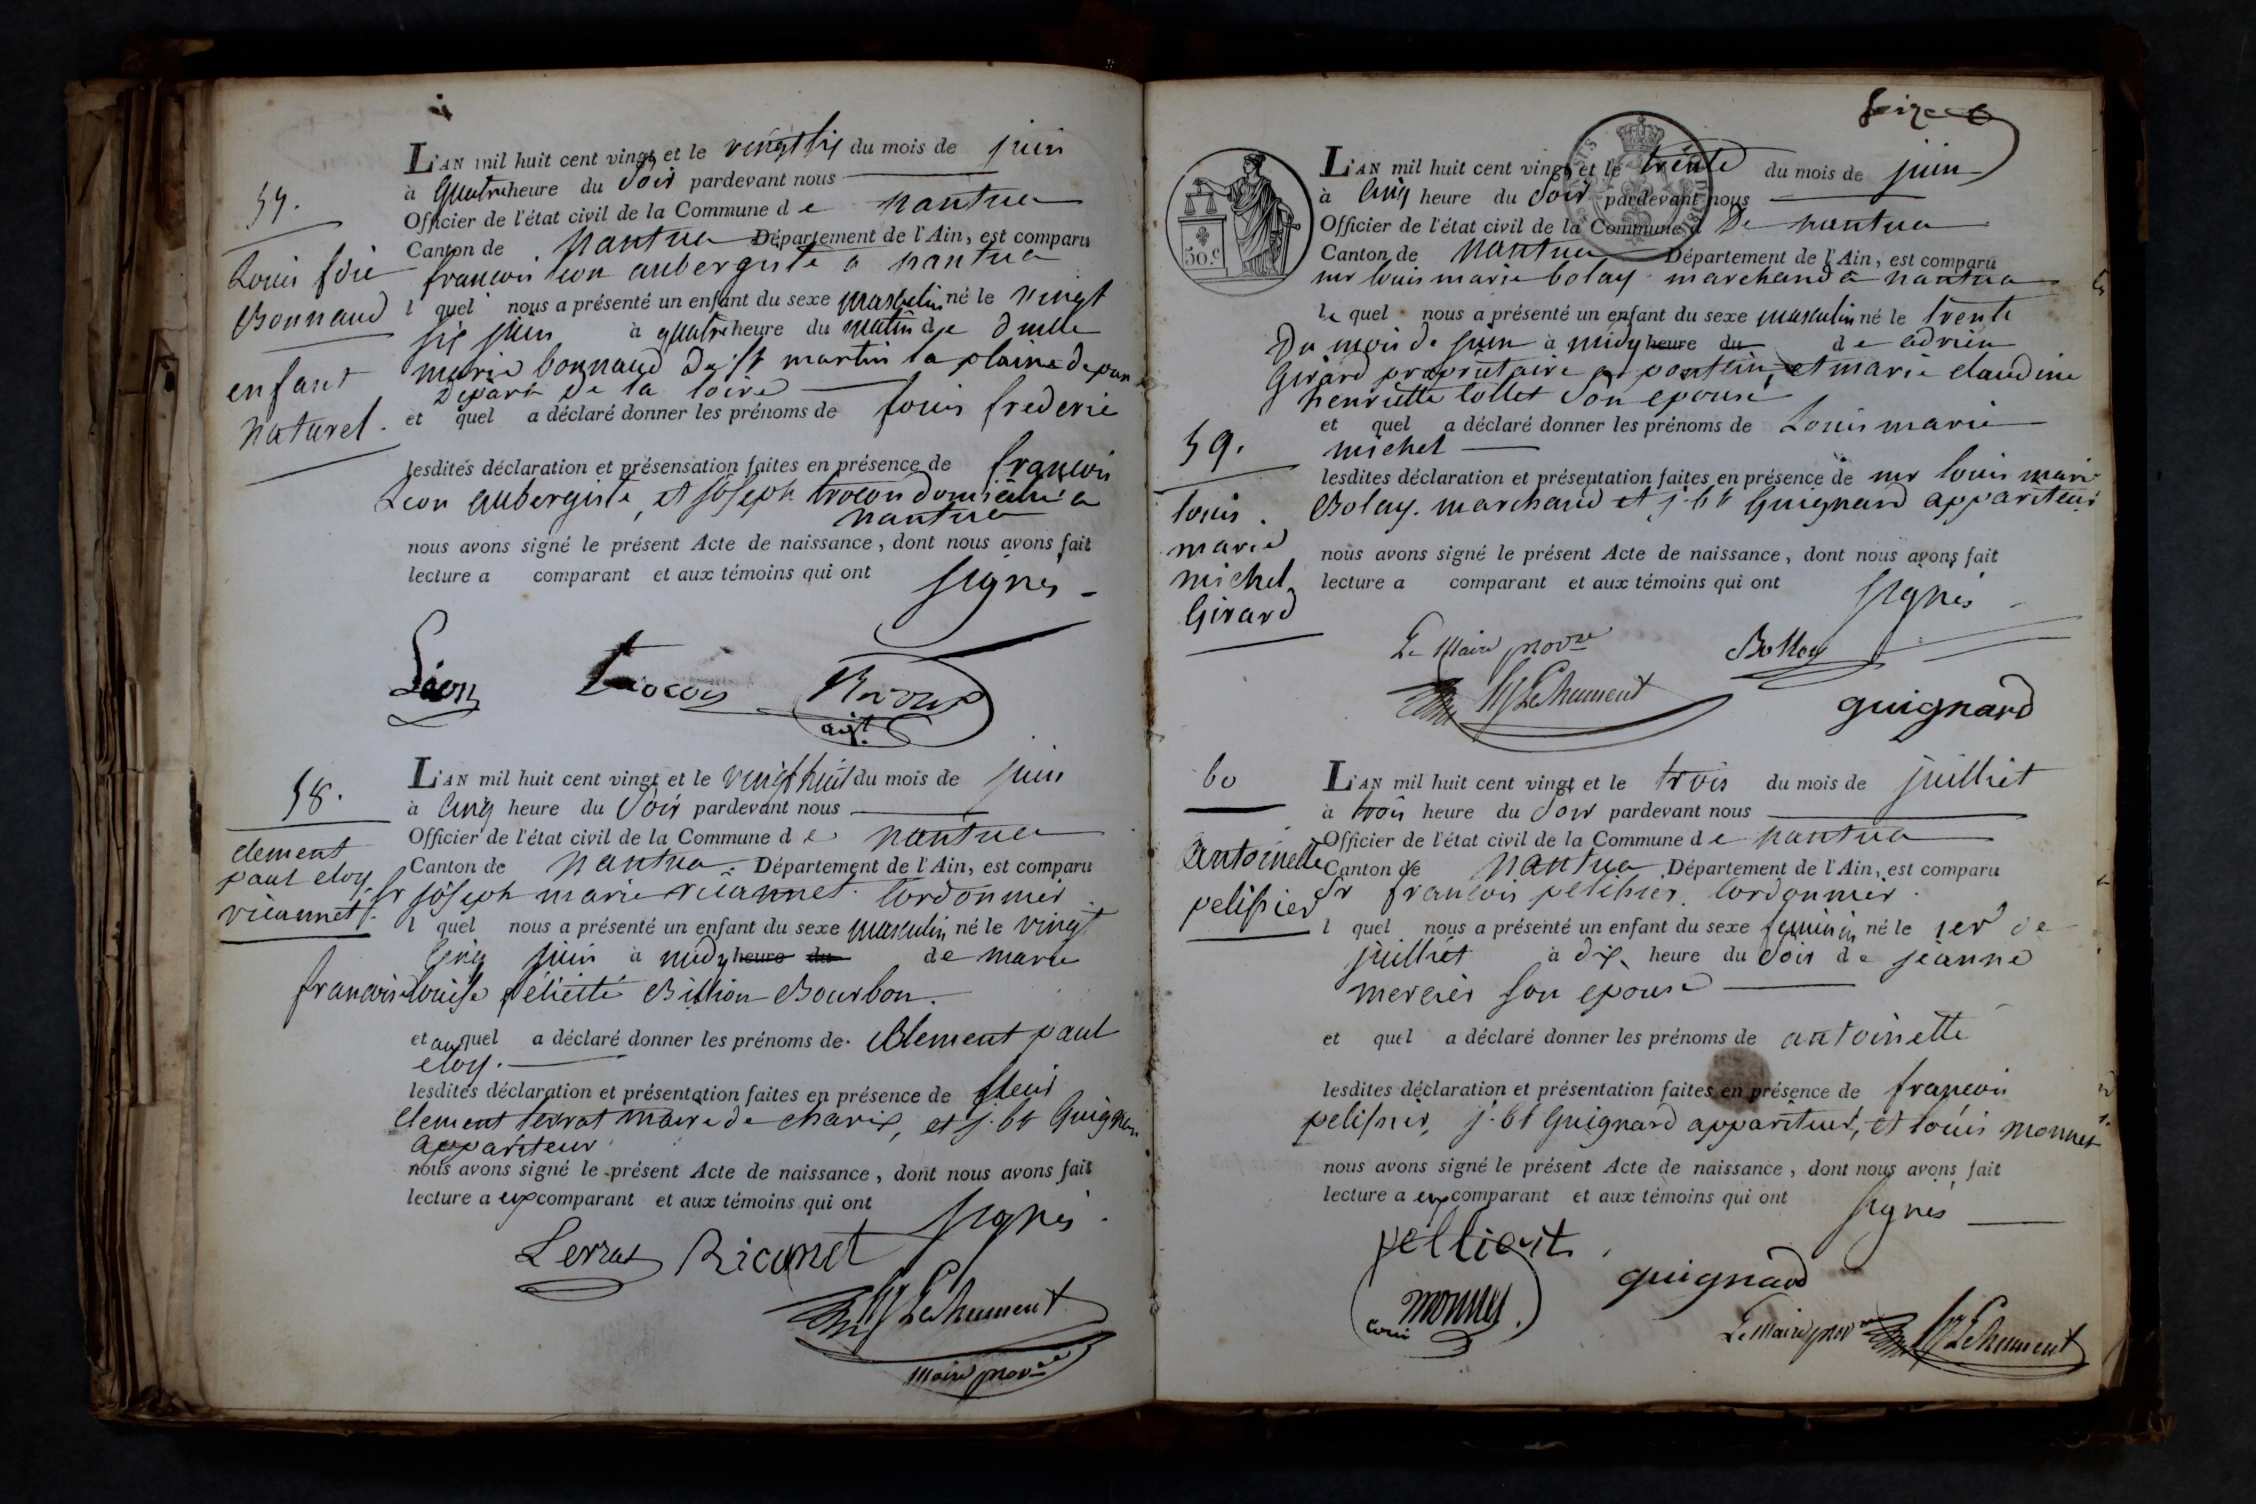 L'AN mil huit cent vingt et le vingt six du mois de juin
à quatre heure du Soir pardevant nous
Officier de l'état civil de la Commune d e nantua
Canton de Nantua Département de l'Ain, est comparu
françois léon aubergiste a nantua
l quel nous a présenté un enfant du sexe masculin né le vingt
six juin à quatre heure du matin de dnelle
marie bonnaud De st martin la plaine
Départ De la loire
et quel a déclaré donner les prénoms de Louis frederic
lesdites déclaration et présensation faites en présence de françois
Leon aubergiste, et joseph trocon domicilié a
nantua
nous avons signé le présent Acte de naissance, dont nous avons fait
lecture a comparant et aux témoins qui ont signés
Léon trocon
57.
Louis fric
Bonnaud
enfant
naturel.
L'AN mil huit cent vingt et le vingt huit du mois de juin
à cinq heure du Soir pardevant nous
Officier de l'état civil de la Commune d e nantua
Canton de nantua. Département de l'Ain, est comparu
sr joseph marie ricannet. Cordonnier.
l quel nous a présenté un enfant du sexe masculin né le vingt
cinq juin à midy heure du de marie
françoise Louise félicité Billion Bourbon.
et auquel a déclaré donner les prénoms de Clement paul
eloy.
lesdites déclaration et présentation faites en présence de sieur
clement terrat maire de charix, et j. bte Guignard
appariteur
nous avons signé le présent Acte de naissance, dont nous avons fait
lecture a ux comparant et aux témoins qui ont signés.
Ricannet
Lehument
Maire prov.re
58.
clement
paul eloy
ricannet.
seize
50.c
L'AN mil huit cent vingt et le trente du mois de juin
à cinq heure du Soir pardevant nous
Officier de l'état civil de la Commune d De nantua
Canton de Nantua Département de l'Ain, est comparu
mr louis marie bolay marchand a nantua
le quel nous a présenté un enfant du sexe masculin né le trente
Du mois de juin à midy heure du de adrien
Girard propriétaire a pontein, et marie claudine
henriette collet Son epouse
et quel a déclaré donner les prénoms de Louis marie
michel
lesdites déclaration et présentation faites en présence de mr louis marie
Bolay. marchand et j. bte Guignard appariteur
nous avons signé le présent Acte de naissance, dont nous avons fait
lecture a comparant et aux témoins qui ont signés
Le Maire prov.re Bollay
Lehument guignard
59.
louis
marie
michel
Girard
L'AN mil huit cent vingt et le trois du mois de juilliet
à trois heure du Soir pardevant nous
Officier de l'état civil de la Commune d e nantua
Canton de Nantua Département de l'Ain, est comparu
Sr françois pelissier. Cordonnier.
l quel nous a présenté un enfant du sexe feminin né le 1er de
juilliet à dix heure du Soir de jeanne
mercier son epouse
et quel a déclaré donner les prénoms de antoinette
lesdites déclaration et présentation faites en présence de françois
pelissier, j. bt Guignard appariteur, et Louis Monnet
nous avons signé le présent Acte de naissance, dont nous avons fait
lecture a ux comparant et aux témoins qui ont signés
guignard
Monnet
Le Maire prov.re Lehument
60
Antoinette
pelissier